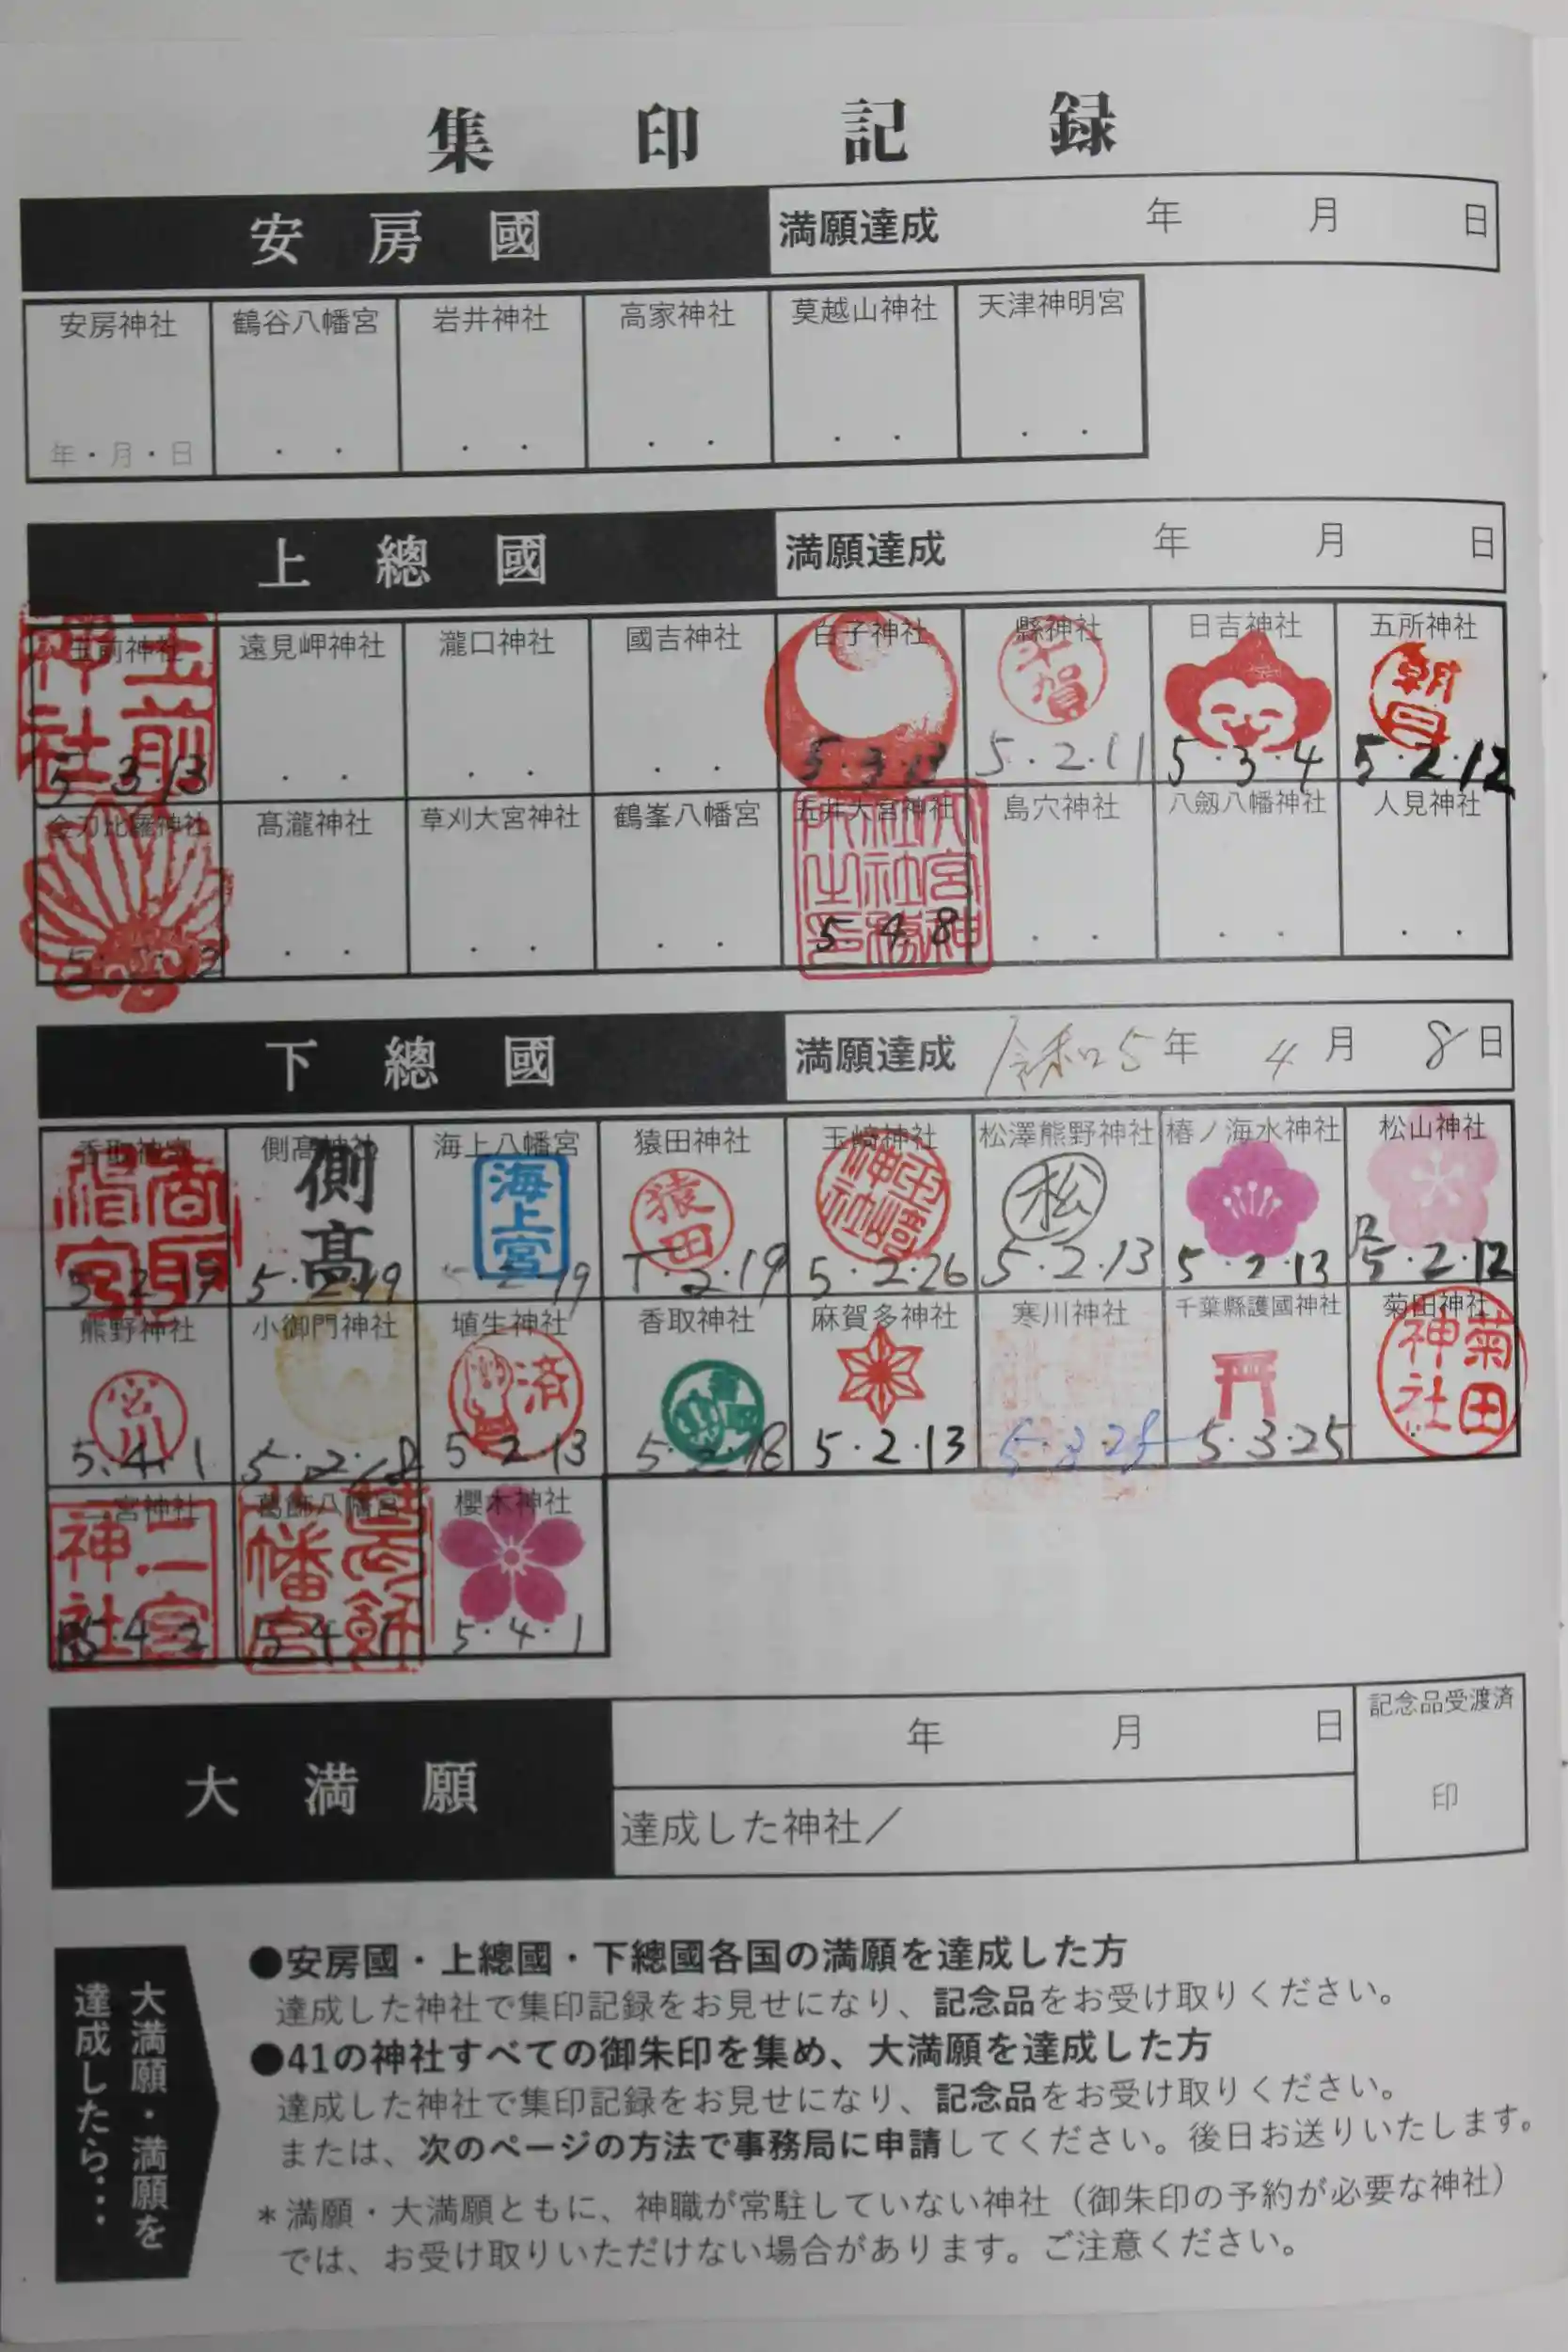 集印記録
安房國 満願達成 年 月 日
安房神社 鶴谷八幡宮 岩井神社 高家神社 莫越山神社 天津神明宮
年・月・日 ・ ・ ・ ・ ・ ・ ・ ・ ・ ・
上總國 満願達成 年 月 日
玉前神社 遠見岬神社 瀧口神社 國吉神社 白子神社 縣神社 日吉神社 五所神社
玉前神社 年賀 朝日
5・3・13 ・ ・ ・ ・ ・ ・ 5・3・13 5・2・11 5・3・4 5・2・12
金刀比羅神社 髙瀧神社 草刈大宮神社 鶴峯八幡宮 五井大宮神社 島穴神社 八劔八幡神社 人見神社
・ ・ ・ ・ ・ ・ 5・4・8 ・ ・ ・ ・ ・ ・
下總國 満願達成 令和5年 4月 8日
香取神宮 側髙神社 海上八幡宮 猿田神社 玉﨑神社 松澤熊野神社 椿ノ海水神社 松山神社
香取神宮 側髙 海上宮 猿田 松
5・2・19 5・2・19 5・2・19 5・2・19 5・2・26 5・2・13 5・2・13 R5・2・12
熊野神社 小御門神社 埴生神社 香取神社 麻賀多神社 寒川神社 千葉縣護國神社 菊田神社
宮川 済 菊田神社
5・4・1 5・2・18 5・2・13 5・2・18 5・2・13 5・3・25 5・3・25
二宮神社 葛飾八幡宮 櫻木神社
二宮神社 葛飾八幡宮
R5・4・2 5・4・1 5・4・1
大満願 年 月 日 記念品受渡済
達成した神社／ 印
大満願・満願を
達成したら…
●安房國・上總國・下總國各国の満願を達成した方
達成した神社で集印記録をお見せになり、記念品をお受け取りください。
●41の神社すべての御朱印を集め、大満願を達成した方
達成した神社で集印記録をお見せになり、記念品をお受け取りください。
または、次のページの方法で事務局に申請してください。後日お送りいたします。
＊満願・大満願ともに、神職が常駐していない神社（御朱印の予約が必要な神社）
では、お受け取りいただけない場合があります。ご注意ください。